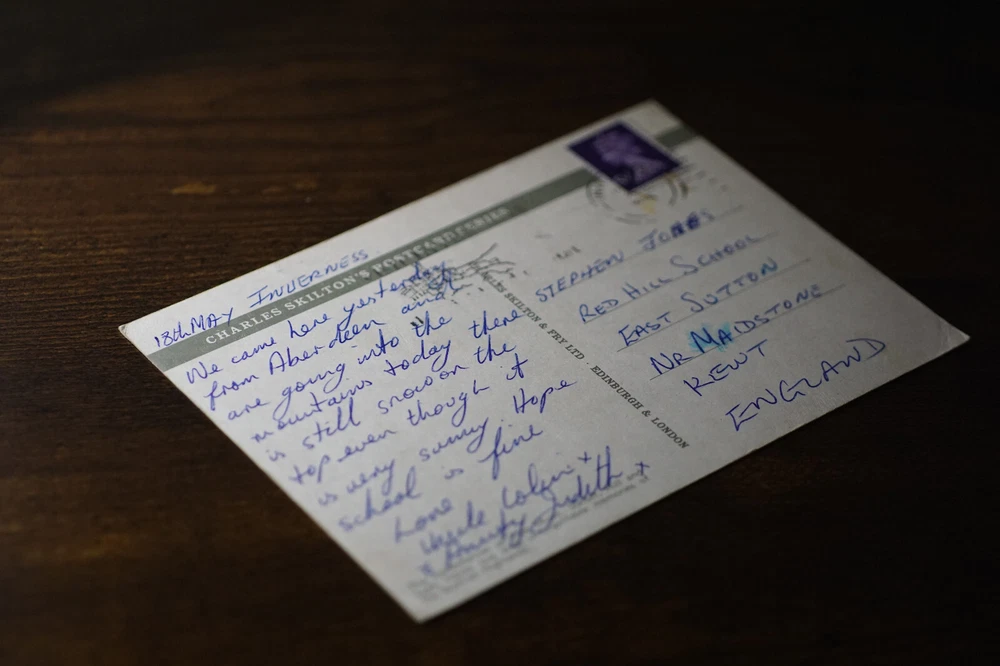 18th MAY INVERNESS
CHARLES SKILTON'S POSTCARD SERIES
We came here yesterday
from Aberdeen and
are going into the
mountains today there
is still snow on the
top even though it
is very sunny Hope
school is fine
Love
Uncle Colin x
x Aunty Judith x
CHARLES SKILTON & FRY LTD · EDINBURGH & LONDON
STEPHEN JONES
RED HILL SCHOOL
EAST SUTTON
NR MAIDSTONE
KENT
ENGLAND